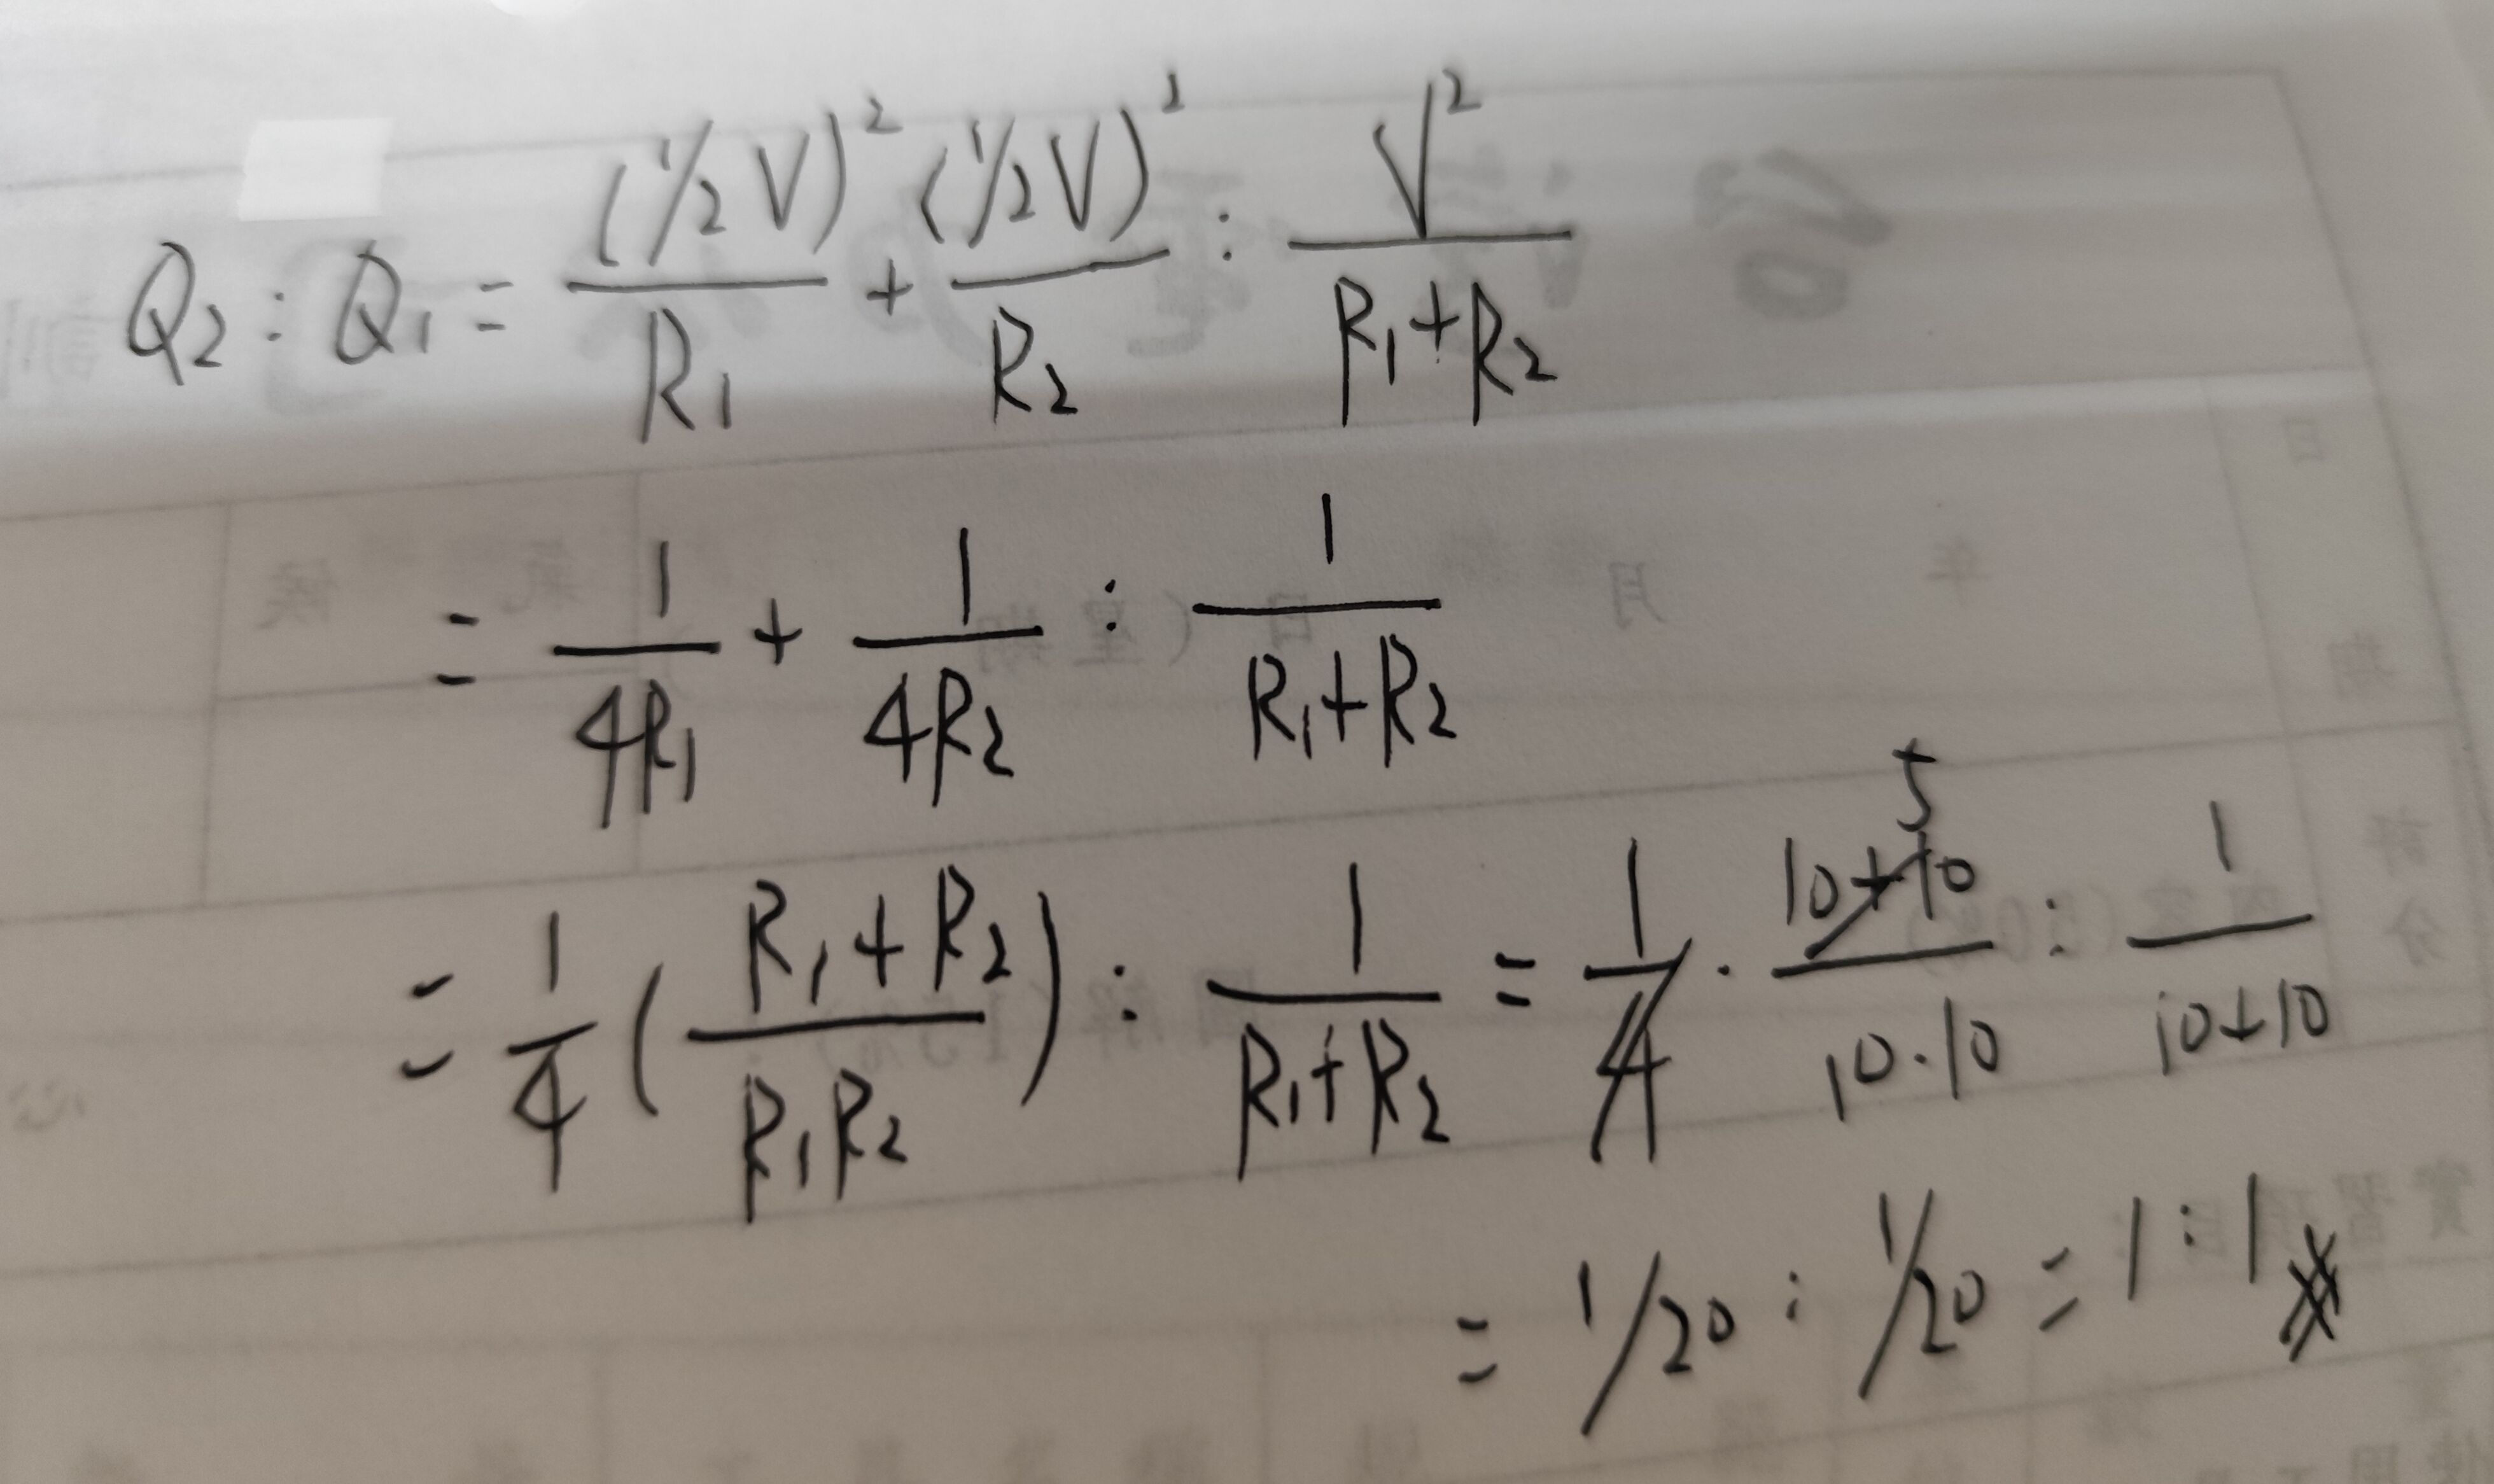 Q₂ : Q₁ = (1/2 V)²/R₁ + (1/2 V)²/R₂ : V²/(R₁+R₂)
= 1/4R₁ + 1/4R₂ : 1/(R₁+R₂)
= 1/4 ((R₁+R₂)/(R₁R₂)) : 1/(R₁+R₂) = 1/4 · (10+10)/(10·10) : 1/(10+10)
5
= 1/20 : 1/20 = 1 : 1